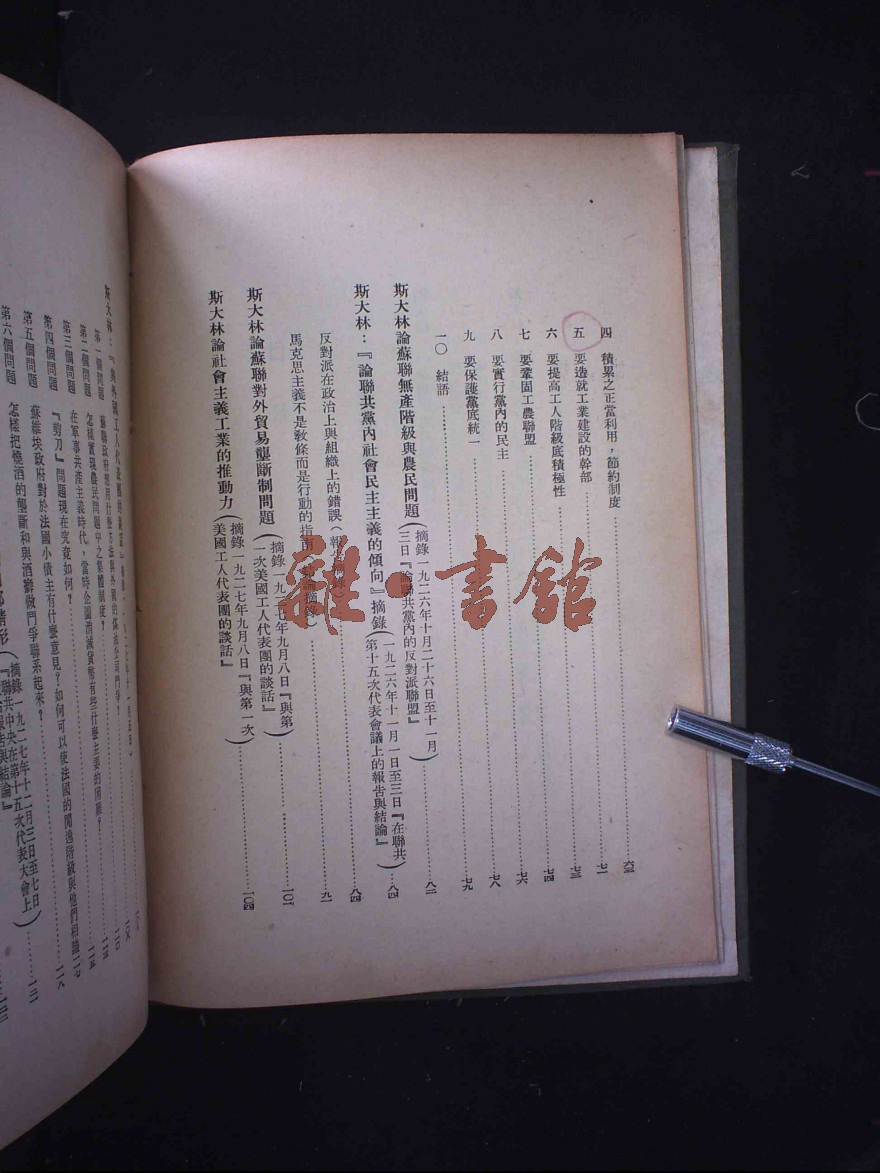 四 積累之正當利用，節約制度……六三
五 要造就工業建設的幹部……七一
六 要提高工人階級底積極性……七三
七 要鞏固工農聯盟……七四
八 要實行黨內的民主……七六
九 要保護黨底統一……七八
一〇 結語……七九
斯大林論蘇聯無產階級與農民問題（摘錄一九二六年十月二十六日至十一月三日『論聯共黨內的反對派聯盟』）……八二
斯大林：『論聯共黨內社會民主主義的傾向』摘錄（一九二六年十一月一日至三日『在聯共第十五次代表會議上的報告與結論』）……八四
反對派在政治上與組織上的錯誤（報告摘錄）……八四
馬克思主義不是教條而是行動的指南（結論摘錄）……九一
斯大林論蘇聯對外貿易壟斷制問題（摘錄一九二七年九月八日『與第一次美國工人代表團的談話』）……一〇二
斯大林論社會主義工業的推動力（摘錄一九二七年九月八日『與第一次美國工人代表團的談話』）……一〇四
斯大林：『與外國工人代表團的談話』
第一個問題 蘇聯政府想用什麼方法與外國的煤油公司鬥爭
第二個問題 怎樣實現農民問題中之集體制度？
第三個問題 在軍事共產主義時代，當時企圖消滅貨幣有些什麼主要的困難？
第四個問題 『剪刀』問題現在究竟如何？
第五個問題 蘇維埃政府對於法國小債主有什麼意見？如何可以使法國的閒逸階級與他們相識
第六個問題 怎樣把燒酒的壟斷和與酒癖做鬥爭聯系起來？
摘錄一九二七年十二月三日至七日
『聯共中央在第十五次代表大會上
雜·書館